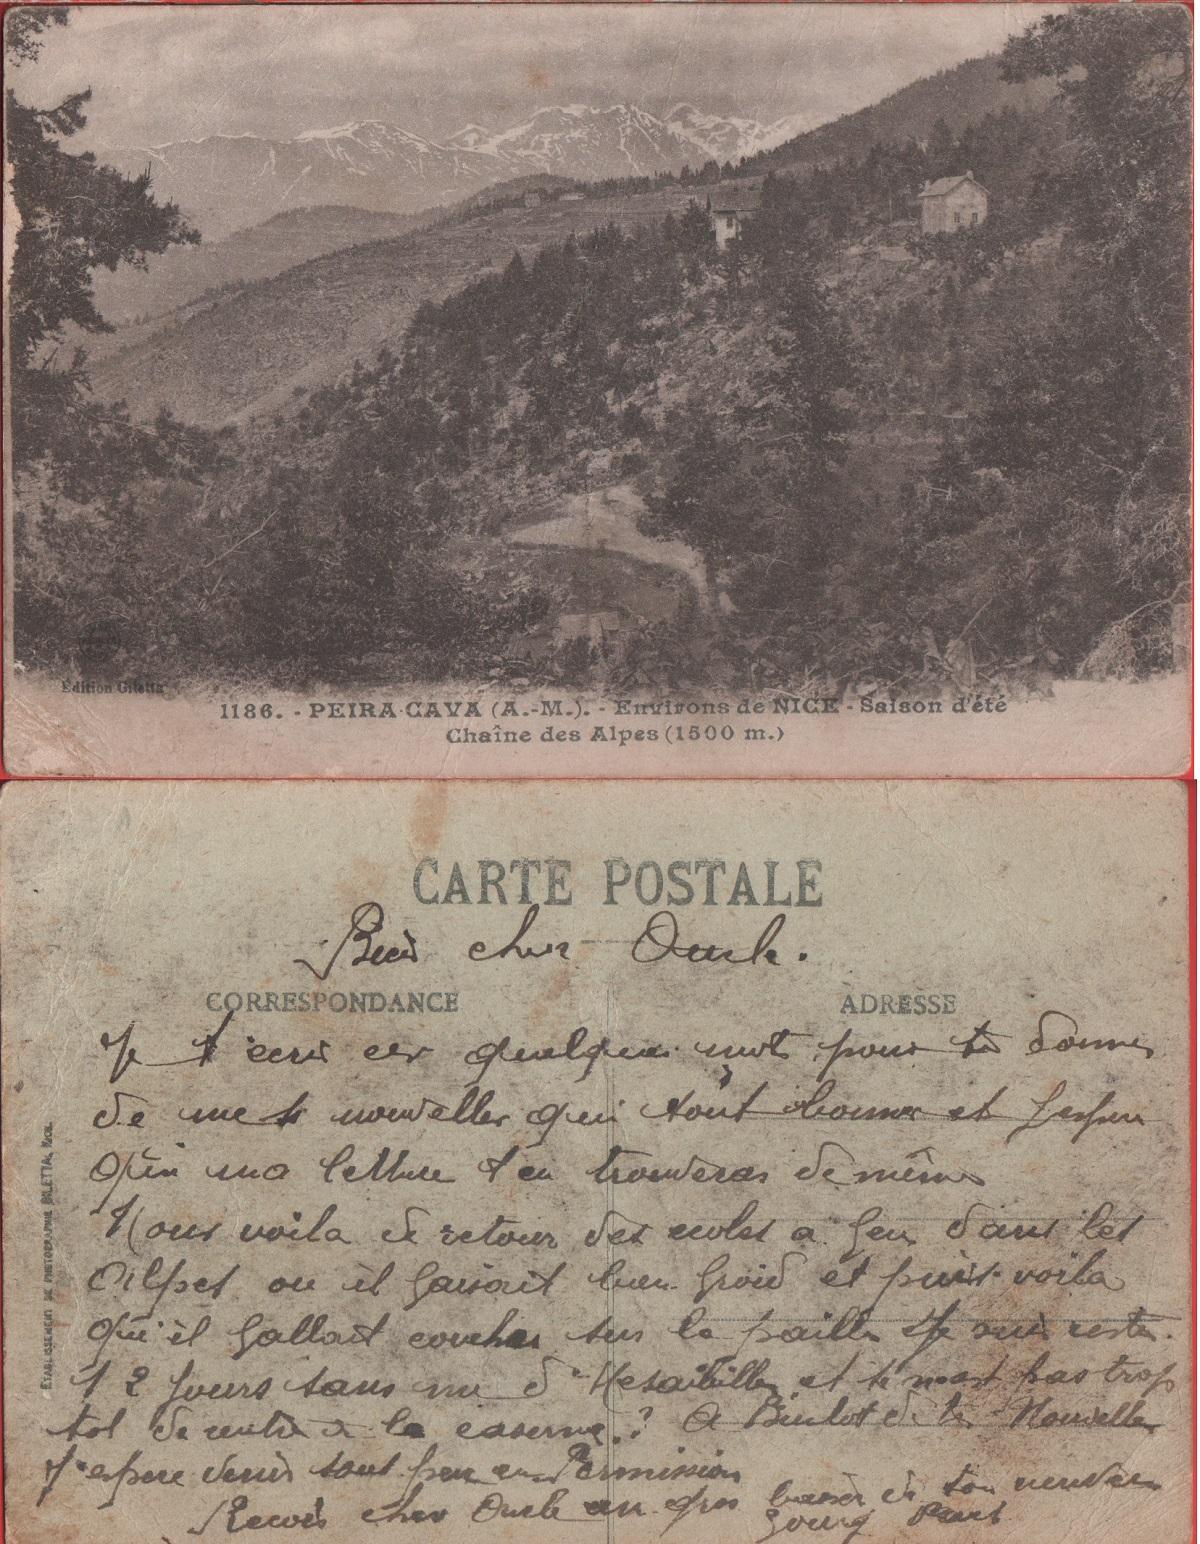 Edition Giletta
1186. - PEIRA-CAVA (A.-M.). - Environs de NICE - Saison d'été
Chaîne des Alpes (1500 m.)
CARTE POSTALE
Bien cher Oncle.
CORRESPONDANCE
ADRESSE
Je t'ecris ces quelques mots pour te donner
de mes nouvelles qui sont bonnes et j'espere
que ma lettre t'en trouveras de même
Nous voila de retour des ecoles a feu dans les
Alpes ou il faisait bien froid et puis voila
qu'il fallait coucher sur la paille Je suis reste
12 jours sans me et se n'est pas trop
tot de rentre a la caserne.? A Bientot de tes Nouvelles
J'espere venir sout peu en Permission
Recois cher Oncle un gros baiser de ton neuveu
ETABLISSEMENT DE PHOTOGRAPHIE GILETTA, NICE.